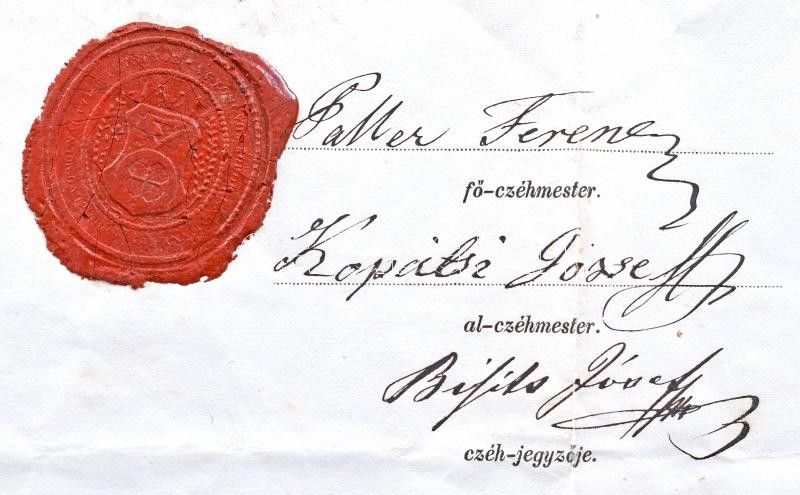 Paller Ferencz
fő-czéhmester.
Kopátsi József
al-czéhmester.
Bisits József
czéh-jegyzője.